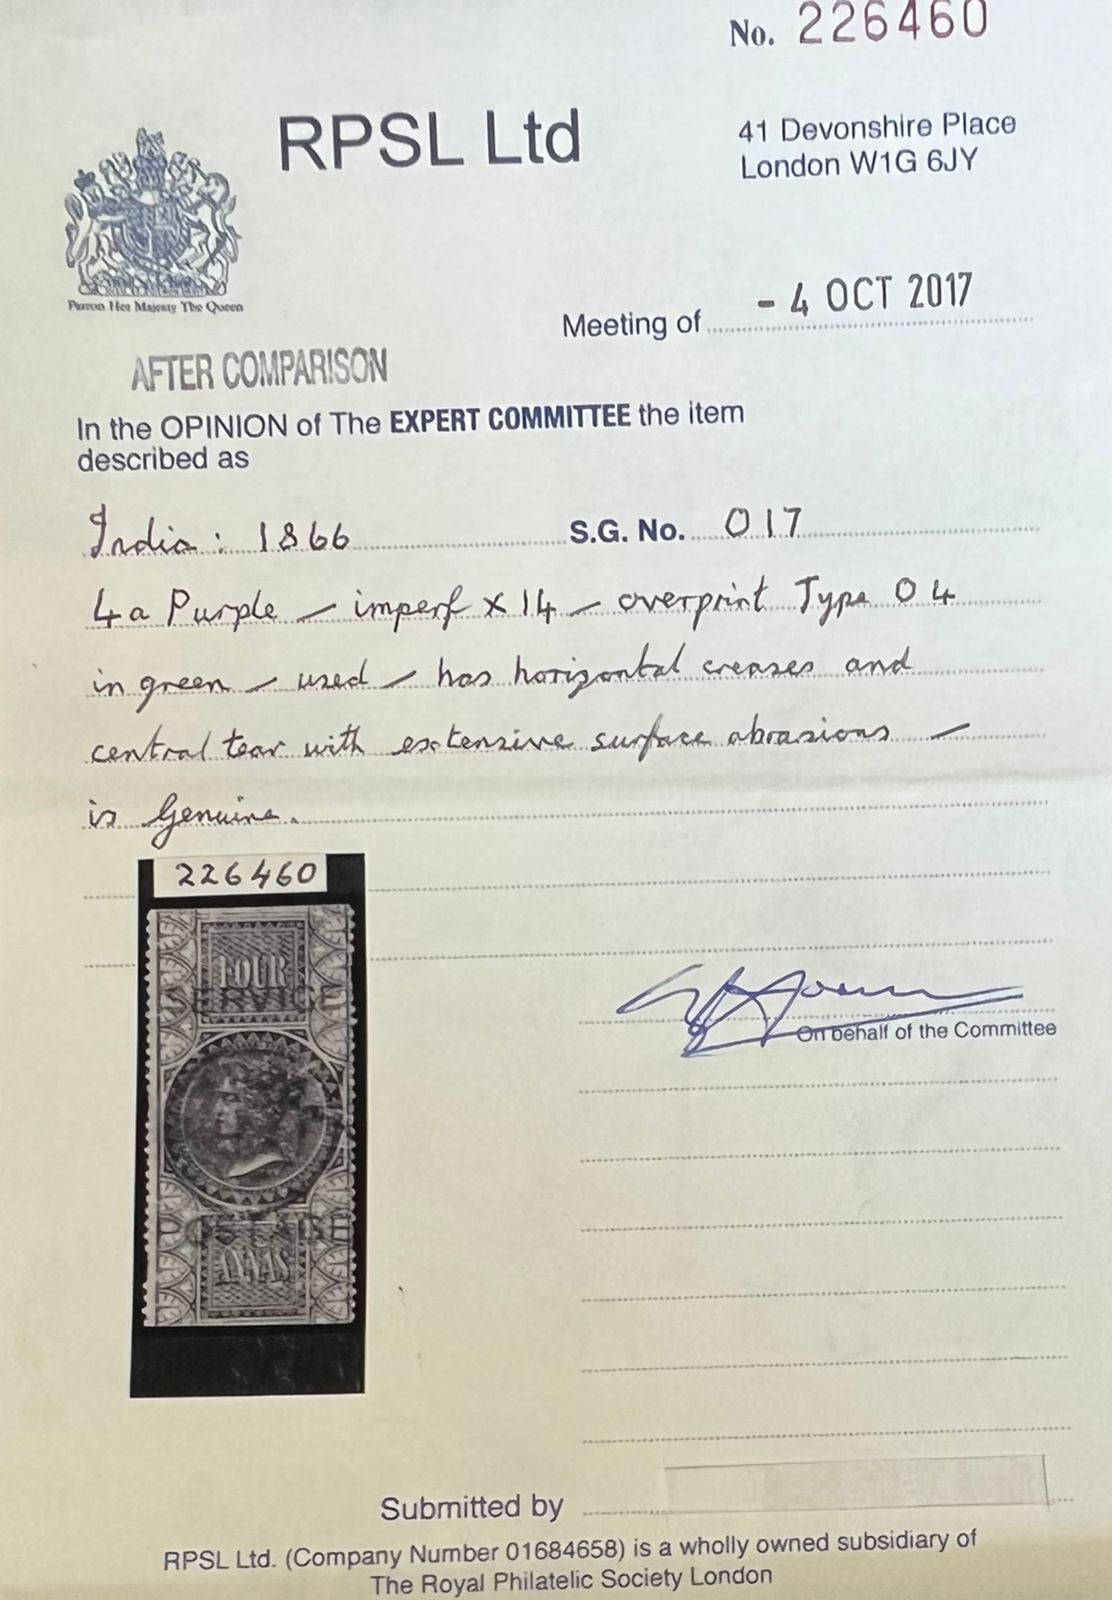 No. 226460
RPSL Ltd
41 Devonshire Place
London W1G 6JY
Patron Her Majesty The Queen
Meeting of - 4 OCT 2017
AFTER COMPARISON
In the OPINION of The EXPERT COMMITTEE the item
described as
India: 1866 S.G. No. O17
4a Purple – imperf x 14 – overprint Type O4
in green – used – has horizontal creases and
central tear with extensive surface abrasions –
is Genuine.
226460
FOUR
ANNAS
On behalf of the Committee
Submitted by
RPSL Ltd. (Company Number 01684658) is a wholly owned subsidiary of
The Royal Philatelic Society London